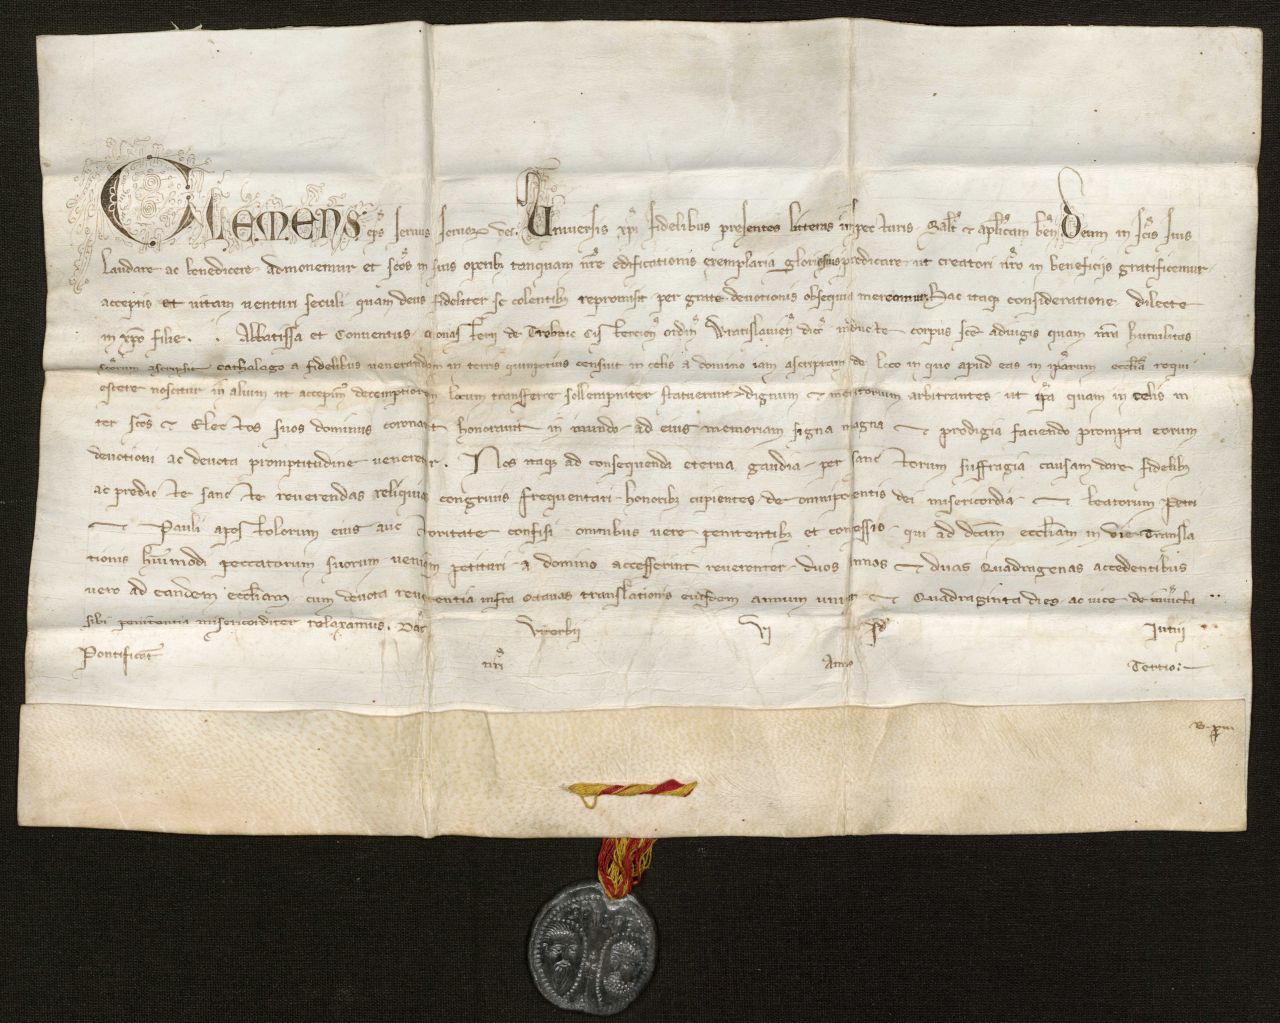 CLEMENS ep̄s servus servoꝝ dei. Universis xp̄i fidelibus presentes litteras inspecturis Salt̄ & aplicam ben̄ Deum in sc̄is suis
laudare ac benedicere admonemur et sc̄os in suis operibꝫ tanquam nr̄e edificationis exemplaria gloriosius predicare ut creatori nr̄o in beneficijs gratificemur
acceptis et vitam venturi seculi quam deus fideliter se colentibꝫ repromisit per grate devotionis obsequia mereamur Hac itaqꝫ consideratione dilecte
in xp̄o filie . . Abbatissa et Conventus monasterij de Trebnic Cistercien̄ ordin̄ Wratislavien̄ dioc̄ corpus sc̄e advigis quam nr̄a humilitas
sc̄orum ascripsit cathalogo a fidelibus venerandam in terris quinpotius censuit in celis a domino iam ascriptam de loco in quo apud eas in ip̄arum eccl̄ia requi
escere noscitur in alium ut accepim̄ decemptiorem locum transferre sollempniter statuerunt dignum & meritorum arbitrantes ut ip̄a quam in celis in
ter sc̄os & Electos suos dominus coronavit honoravit in mundo ad eius memoriam signa magna & prodigia faciendo prompta eorum
devotioni ac devota promptitudine veneretur. Nos itaqꝫ ad consequenda eterna gaudia per sanctorum suffragia causam dare fidelibꝫ
ac predicte sancte reverendas reliquias congruis frequentari honoribꝫ cupientes de omnipotentis dei misericordia & beatorum Petri
& Pauli apostolorum eius auctoritate confisi omnibus vere penitentibꝫ et confessis qui ad dc̄am eccl̄iam in die Transla
tionis huiusmodi peccatorum suorum veniam petituri a domino accesserint reverenter duos annos & duas Quadragenas accedentibus
vero ad eandem eccl̄iam cum devota reverentia infra octavas translationis eiusdem annum unum & Quadraginta dies ac iuce de iniūcta
sibi penitentia misericorditer relaxamus. Dat̄ Viterbii VJ Id̄ Iunii
Pontificat̄ nr̄i Anno Tertio:
B. p̄m